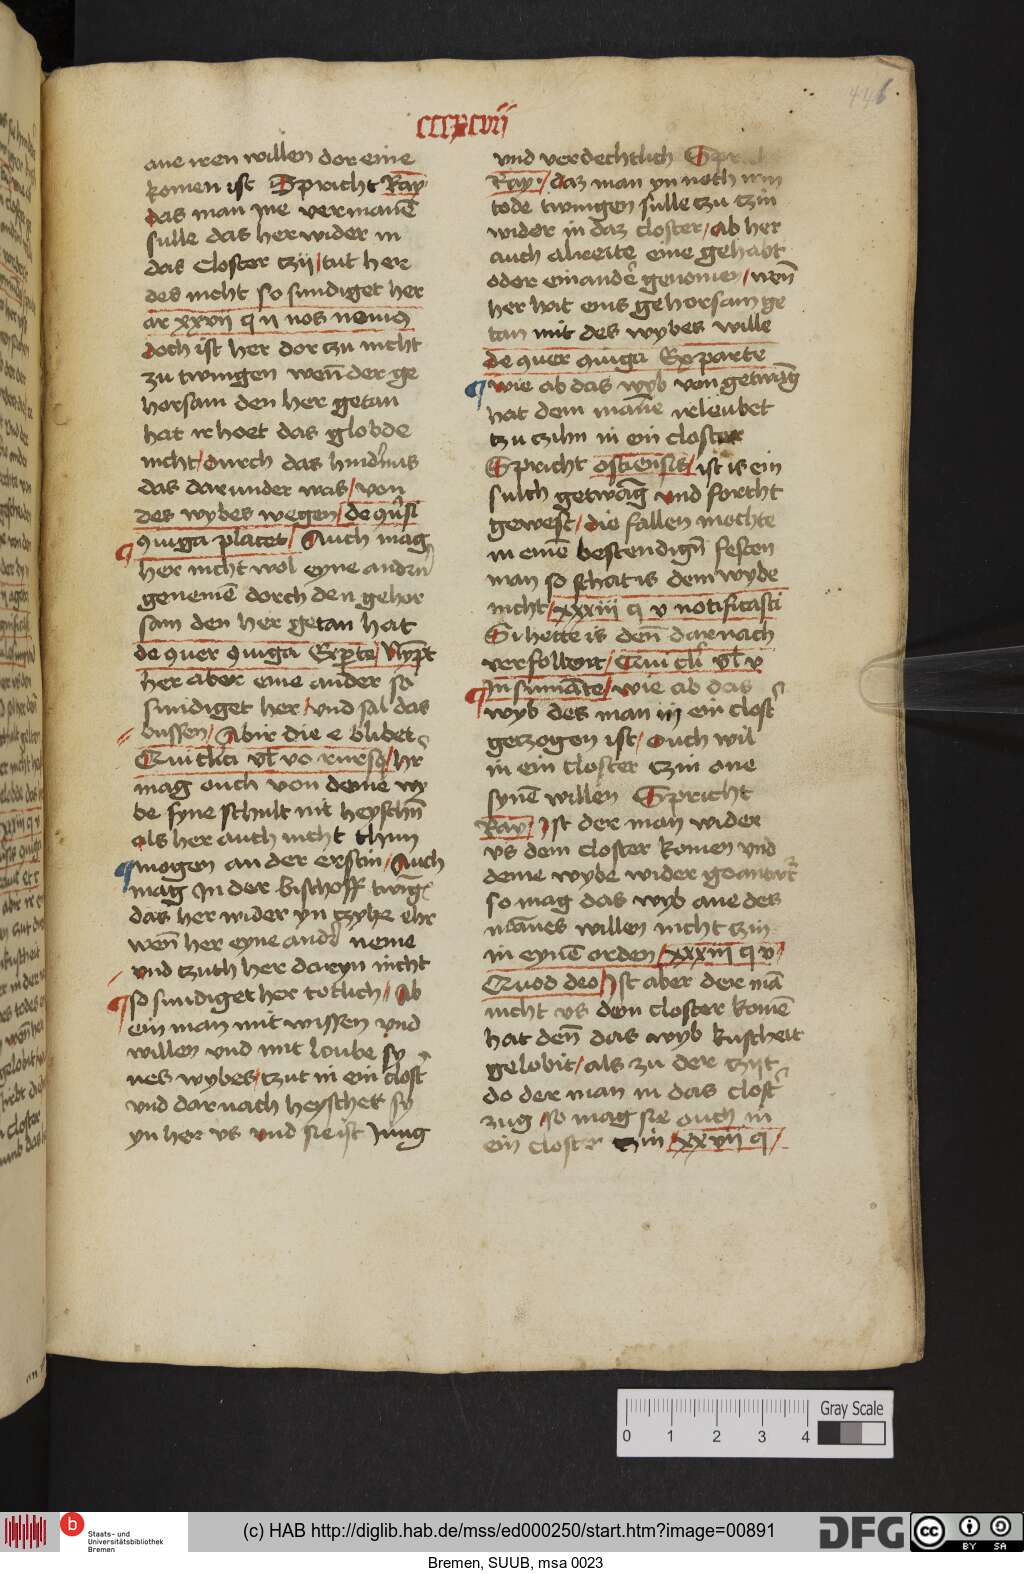 446
cccxcvii
ane iren willen dor eine
komen ist Spricht Ray
das man yne vermanē
sulle das her wider in
das Closter tzij / tut here
des nicht so sundiget her
ar xxvij q ij nos nouimꝯ
doch ist her dor tzu nicht
zu twingen wen̄ der ge
horsam den her getan
hat ir hoet das globde
nicht / durch das hind'nis
das dar under was / von
des wybes wegen / de 9u'si
9iuga placet / Auch mag
her nicht wol eyne andrn̄
genemē dorch den gehor
sam den her getan hat
de 9uer 9iuga Exp̱te /
her aber eine ander so
sundiget her / und sal das
bussen / Abir die e blibet
Qui cl'ici vl' vo rursꝯ / hr
mag ouch von deme wy
be syne schult nit heyschn̄
als her auch nicht thun
mogen an der erstin / Auch
mag In der bischoff twīg'
das her wider yn tzyhe ehr
wen̄ her eyne andr' neme
und tzuth her dar yn nicht
so sundiget her totlich / Ab
ein man mit wissen und
willen und mit loube sy
nes wybes / tzut in ein clost'
und dar nach heyschet sy
yn her vs und sie ist Jung
und verdechtlich
Ray / daz man yn noch irm
tode twingen sulle tzu tzin
wider in daz closter / ab her
auch alreite eine gehabt
oder ein andē genomen / wen̄
her hat eins gehorsam ge
tan mit des wybes wille
de 9uer 9iuga Ex parte
wie ab das wyb von getwāg
hat dem mañe irleubet
tzu tzihn in ein closter
Spricht ostiensis / ist is ein
sulch getwāg und forcht
gewest / die fallen mochte
in einē bestendign̄ festen
man so schat is dem wybe
nicht / xxxiij q v notificasti
Si hette is den̄ dar nach
verfolbort / Qui cl'i vl' v
In sum̄a te / wie ab das
wyb des man in ein clost'
gezogen ist / ouch wil
in ein closter tzin ane
synē willen Spricht
Ray / Ist der man wider
vs dem closter komen und
deme wybe wider geantw't
so mag das wyb ane des
mānes willen nicht tzin
in eynē orden / xxxiij q v
Quod deo / Ist aber der mā
nicht vs dem closter komē
hat den̄ das wyb kuscheit
gelobit / als zu der tzijt
do der man in das clost'
zug / so mag sie ouch in
ein closter tzin / xxvij q /
0 1 2 3 4
Gray Scale
b
Staats- und
Universitätsbibliothek
Bremen
(c) HAB http://diglib.hab.de/mss/ed000250/start.htm?image=00891
DFG
cc
BY SA
Bremen, SUUB, msa 0023